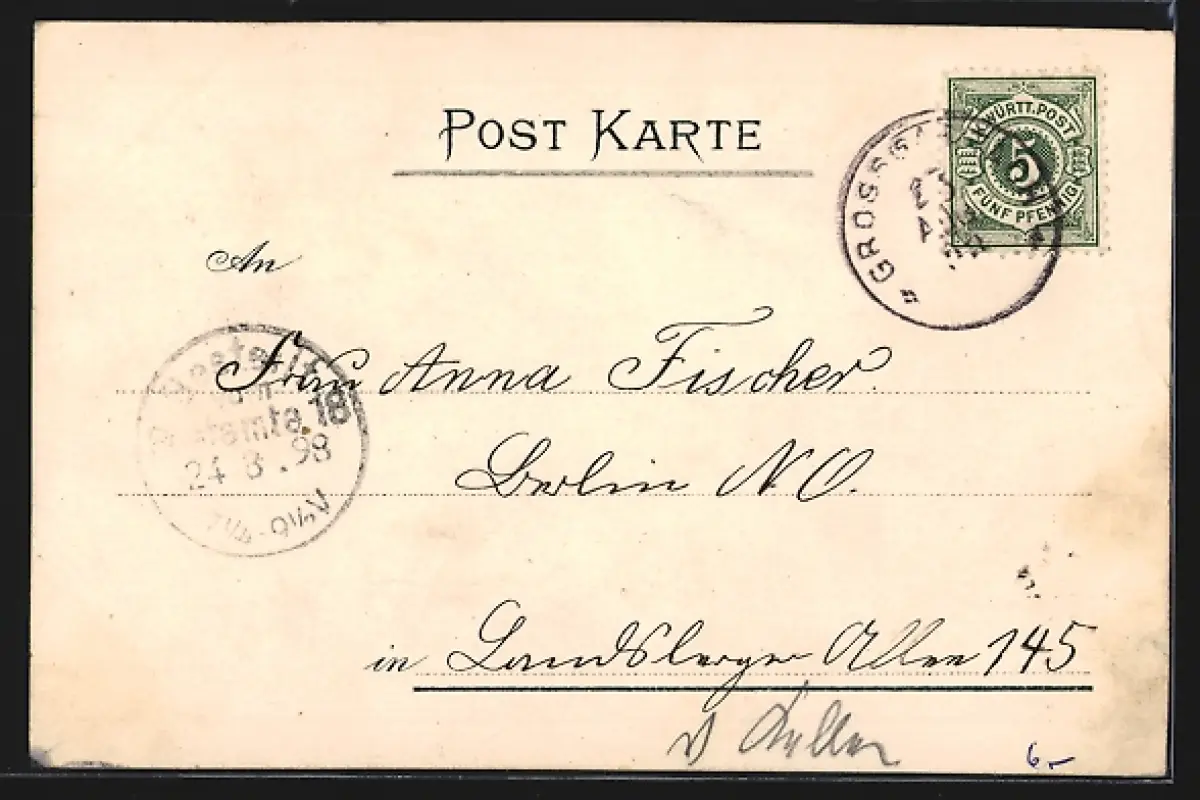 POST KARTE
K. WÜRTT. POST
5
FÜNF PFENNIG
GROSSGA
An
Frau Anna Fischer.
Berlin N.O.
in Landsberger Allee 145
Bestellt
Postamte 18
24 3.98
7¼-9½N
6-